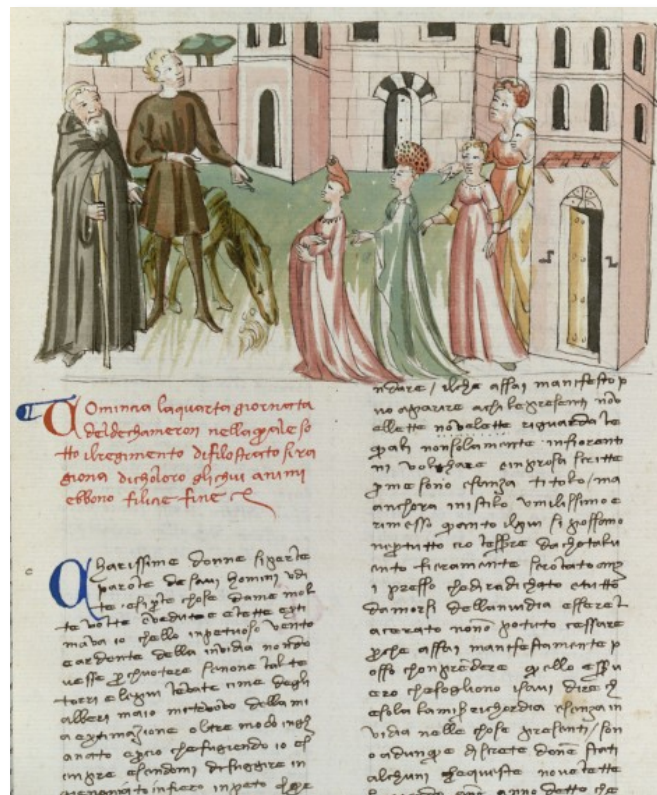 Comincia la quarta giornata
del dechameron nella quale so
tto il regimento di filostrato si ra
giona di choloro gli chui animi
ebbono filicie fine
Charissime donne si per le
parole de savi homini udi
te e si per le chose da me mol
te volte e vedute e lette exti
mava io che llo inpetuoso vento
e ardente della invidia non do
vesse perchuotere se none l alte
torri e le piu levate cime degli
alberi ma io mi truovo della mi
a extimazione oltre modo ing
anato e cio che fugiendo io e
enpre essendomi di fuggire in
ndare / il che assai manifesto p
uo aparire a chi le presenti nov
ellette novelette riguarda le
quali non solamente in fiorent
ni volghare e in prosa scritte
per me sono e sanza titolo / ma
anchora in istilo umilissimo e
rimesso quanto il piu si possono
ne per tutto cio l essere da chotale
vento fieramente scrolato anz
i presso che diradichato e tutt
da morsi della nvidia essere l
acerato nono potuto cessare
perche assai manifestamente p
osso chonprendere quello essere
vero che sogliono i savi dire ch
e sola la miserichordia e senza in
vidia nelle chose presenti / son
o adunque discrete done stati
alchuni che queste novelette